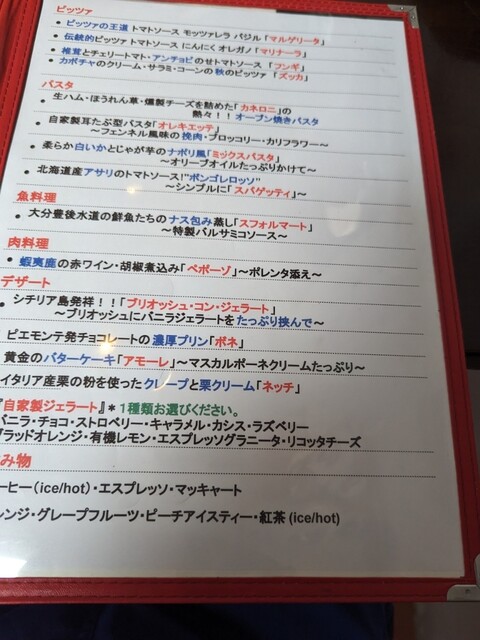 ピッツァ
・ピッツァの王道 トマトソース モッツァレラ バジル「マルゲリータ」
・伝統的ピッツァ トマトソース にんにく オレガノ「マリナーラ」
・椎茸とチェリートマト・アンチョビのせトマトソース 「フンギ」
・カボチャのクリーム・サラミ・コーンの 秋のピッツァ 「ズッカ」
パスタ
・生ハム・ほうれん草・燻製チーズを詰めた「 カネロニ」の
熱々！！ オーブン焼きパスタ
・自家製耳たぶ型パスタ「オレキエッテ」
～フェンネル風味の 挽肉・ブロッコリー・カリフラワー～
・柔らか白いかとじゃが芋のナポリ風「ミックスパスタ」
～オリーブオイルたっぷりかけて～
・北海道産アサリのトマトソース!"ボンゴレロッソ"
～シンプルに「 スパゲッティ」～
魚料理
・大分豊後水道の鮮魚たちの ナス包み蒸し「スフォルマート」
～特製バルサミコソース～
肉料理
・蝦夷鹿の赤ワイン・胡椒煮込み「ペポーゾ」～ポレンタ添え～
デザート
・シチリア島発祥！！「ブリオッシュ・コン・ジェラート」
～ブリオッシュにバニラジェラートを たっぷり挟んで～
ピエモンテ発チョコレートの 濃厚プリン「ボネ」
黄金のバターケーキ「アモーレ」～マスカルポーネクリームたっぷり～
イタリア産栗の粉を使った クレープと栗クリーム「ネッチ」
『自家製ジェラート』＊１種類お選びください。
バニラ・チョコ・ストロベリー・キャラメル・カシス・ラズベリー
ブラッドオレンジ・有機レモン・エスプレッソグラニータ・リコッタチーズ
み物
ーヒー（ice/hot）・エスプレッソ・マッキャート
レンジ・グレープフルーツ・ピーチアイスティー・紅茶 (ice/hot)